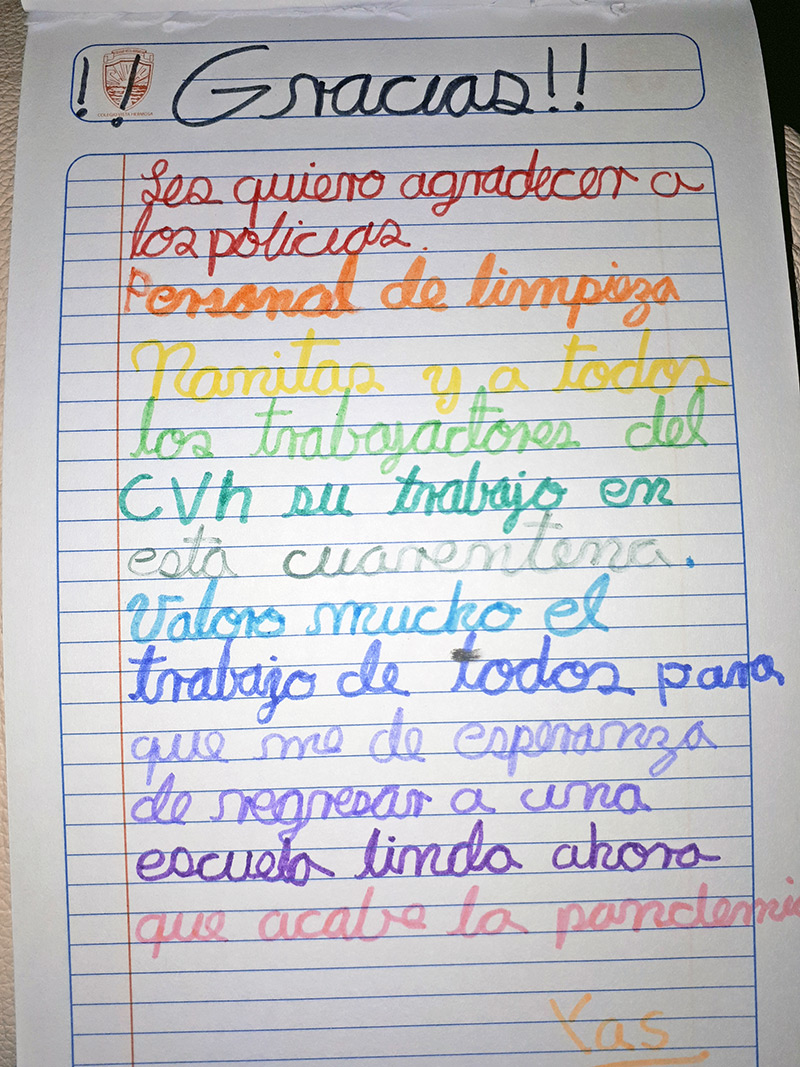 !! Gracias!!
COLEGIO VISTA HERMOSA
Les quiero agradecer a
los policias.
Personal de limpieza
Nanitas y a todos
los trabajadores del
CVh su trabajo en
está cuarentena.
Valoro mucho el
trabajo de todos para
que me de esperanza
de regresar a una
escuela linda ahora
que acabe la pandemia
Yas